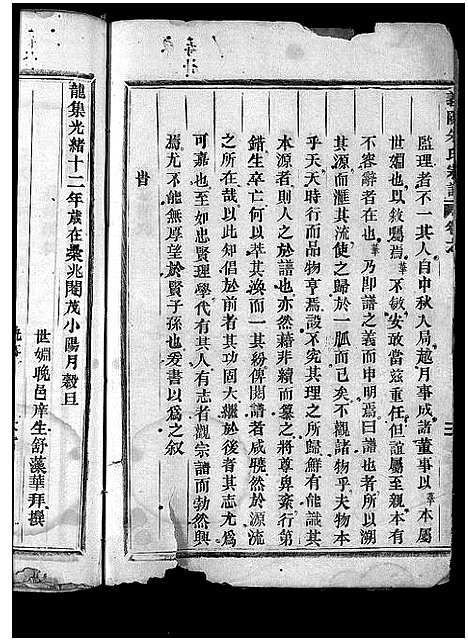 義門朱氏宗譜 卷之
監理者不一其人自中秋入局越月事成諸董事以華本屬
世姻也以敘囑焉華不敏安敢當茲重任但誼屬至親本有
不容辭者在也華乃即譜之義而申明焉曰譜也者所以溯
其源而滙其流使之歸於一脈而已矣不觀諸物乎夫物本
乎天天時行而品物亨焉設不究其理之所歸鮮有能識其
本源者則人之於譜也亦然藉非續而纂之將尊卑紊行第
錯生卒亡何以萃其渙而一其紛俾閱譜者咸曉然於源流
之所在哉以此知倡於前者其功固大繼於後者其志尤爲
可嘉也至如忠賢理學代有其人有志者觀宗譜而勃然興
焉尤不能無厚望於賢子孫也爰書以爲之叙
旹
龍集光緒十二年歲在柔兆閹茂小陽月穀旦
世姻晚邑庠生舒藻華拜撰